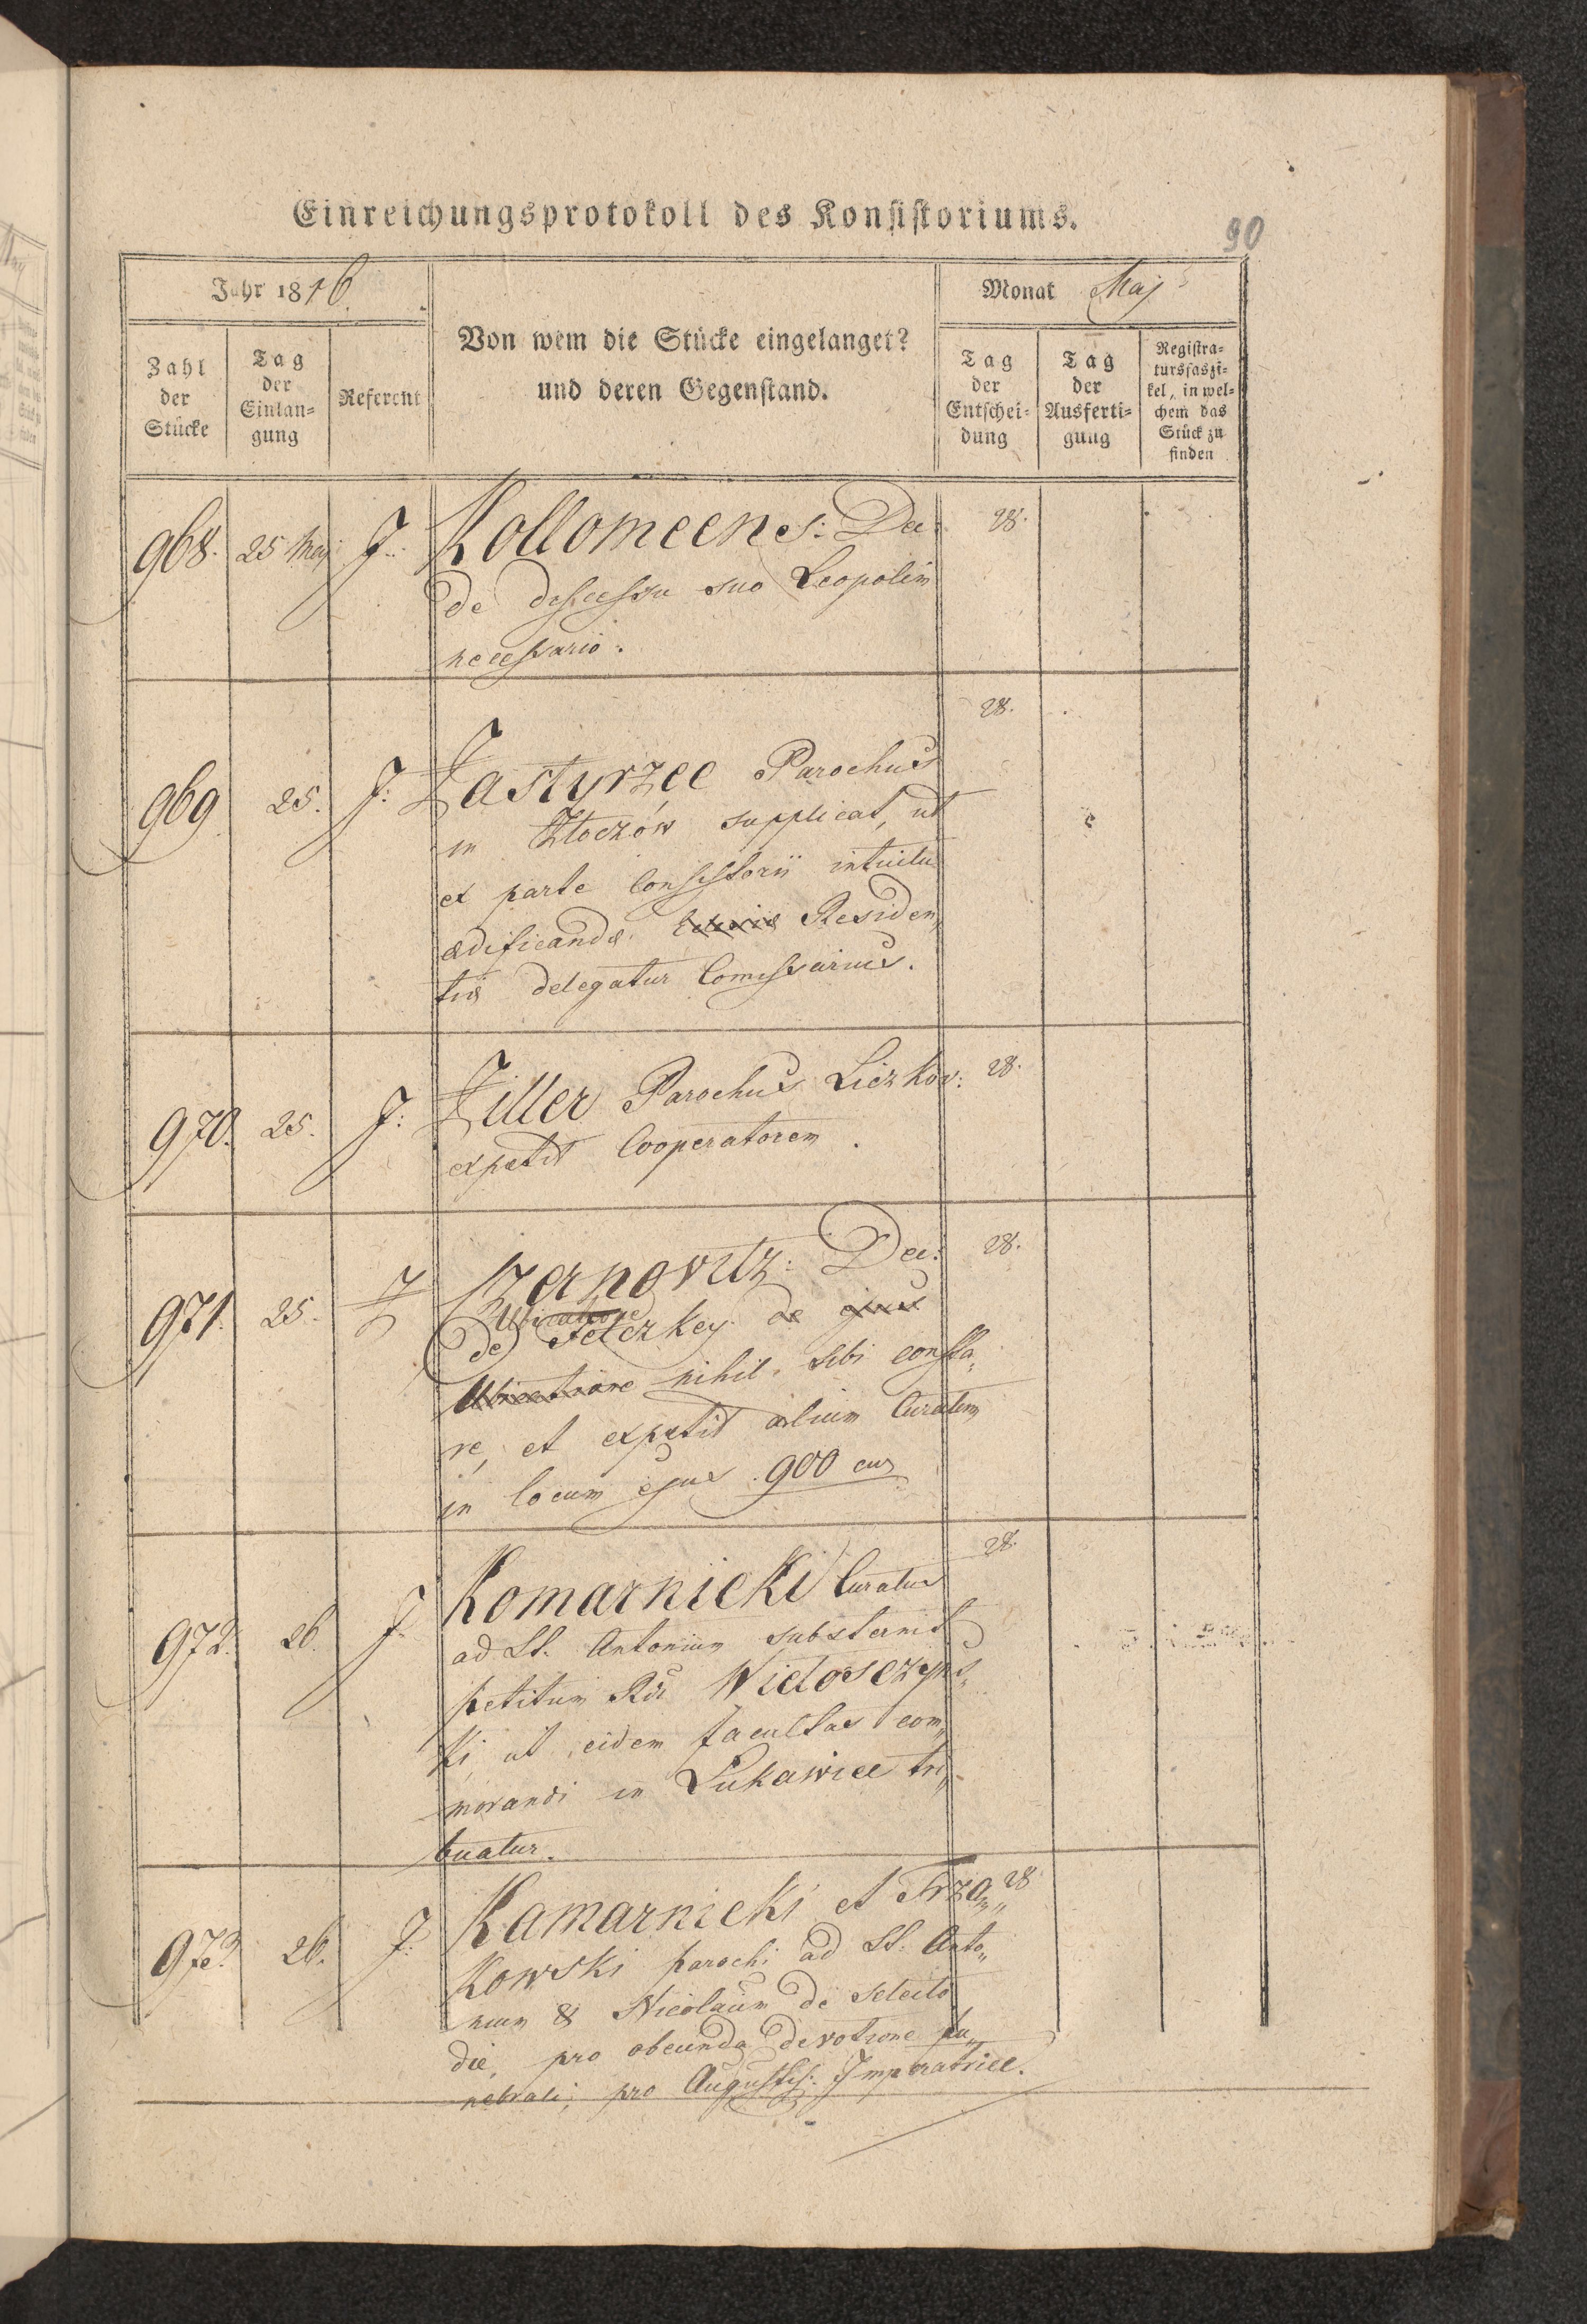 Einreichungsprotokoll des Konsistoriums.
90
Jahr 1816.
Monat Maj
Von wem die Stücke eingelanget?
und deren Gegenstand.
Zahl der Stücke
Tag der Einlan-gung
Referent
Tag der Entschei-dung
Tag der Ausferti-gung
Registra-tursfaszi-kel, in wel-chem das Stück zu finden
968. 25 Maj J. Kollomeens: Dec: 28.
de descessu suo Leopolim
necessario.
969 25. J: Zastyrzec Parochus 28.
in Złoczów supplicat, ut
ex parte Consistorii intuitu
ædificandæ Residen„
tiæ delegatur Comissarius.
970. 25. J: Ziller Parochus Liczkov: 28.
expetit Cooperatorem.
971. 25. Czernovitz: Dec: 28.
Ubicatione
de Feterkey de ejus
Ubicatione nihil sibi consta„
re, et expetit alium Curatum
in locum ejus 900 cur
972. 26. J. Komarnicki Curatus 28.
ad St. Antonium substernit
petitum Rdi Wietoszyns„
ki ut eidem facultas com„
morandi in Lukawice tri„
buatur.
973. 26. J: Kamarnicki et Trza„ 28
kowski parochi ad St: Anto„
nium & Nicolaum de selecto
die, pro obeunda devotione fu„
nebrali, pro Augustis: Imperatrice.